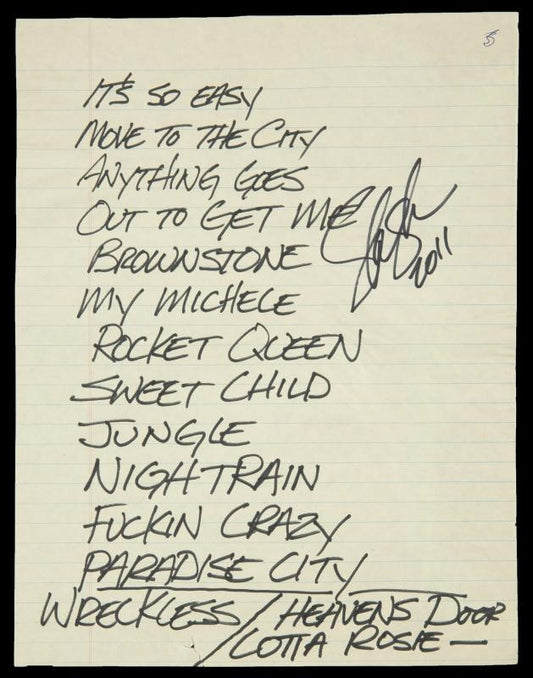 5
IT'S SO EASY
MOVE TO THE CITY
ANYTHING GOES
OUT TO GET ME
Slash 2011
BROWNSTONE
MY MICHELE
ROCKET QUEEN
SWEET CHILD
JUNGLE
NIGHTRAIN
FUCKIN CRAZY
PARADISE CITY
WRECKLESS / HEAVENS DOOR
/ LOTTA ROSIE —